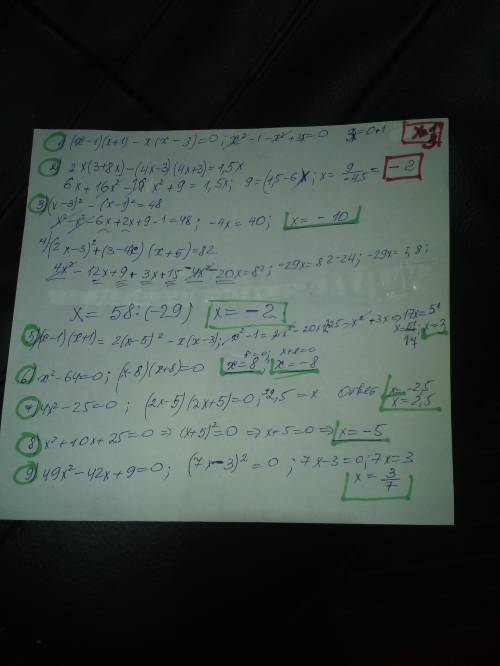 1) (x-1)(x+1) - x(x-3)=0; x²-1-x²+3x=0 3x=0+1 x=1/3
2) 2x(3+8x)-(4x-3)(4x+3)=1,5x
6x+16x²-16x²+9=1,5x; 9=(1,5-6)x; x=9/-4,5= -2
3) (x-3)²-(x-1)²=48
x²-x²-6x+2x+9-1=48; -4x=40; x=-10
4) (2x-3)²+(3-4x)(x+5)=82
4x²-12x+9+3x+15-4x²-20x=82; -29x=82-24; -29x=58;
x=58:(-29) x=-2
5) (x-1)(x+1)=2(x-5)²-x(x-3); x²-1=2x²-20x+25-x²+3x⇒17x=51
x=51/17 x=3
6) x²-64=0; (x-8)(x+8)=0 x-8=0; x+8=0 x=8; x=-8
7) 4x²-25=0; (2x-5)(2x+5)=0; ±2,5=x Ответ x=-2,5
x=2,5
8) x²+10x+25=0 ⇒ (x+5)²=0 ⇒ x+5=0 ⇒ x=-5
9) 49x²-42x+9=0; (7x-3)²=0; 7x-3=0; 7x=3
x=3/7